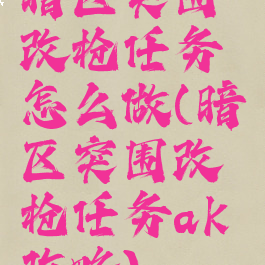 暗区突围
改枪任务
怎么做(暗
区突围改
枪任务ak
攻略)